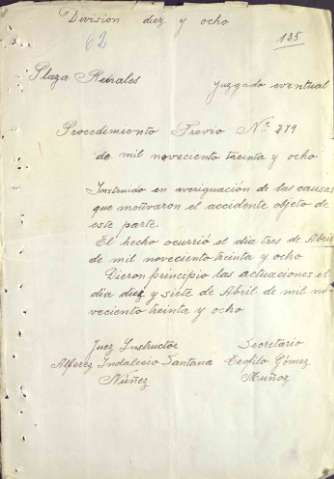 Division diez y ocho
62
135
Plaza Perales
Juzgado eventual
Procedimiento Previo Nº 279
de mil noveciento treinta y ocho
Instruido en averiguación de las causas
que motivaron el accidente objeto de
este parte.
El hecho ocurrió el día tres de Abril
de mil noveciento treinta y ocho
Dieron principio las actuaciones el
día diez y siete de Abril de mil no
veciento treinta y ocho
Juez Instructor
Secretario
Alferez Indalecio Santana
Teofilo Gómez
Núñez
Muñoz